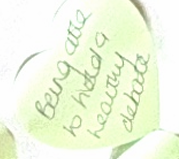 Being able
to hold a
healthy
debate